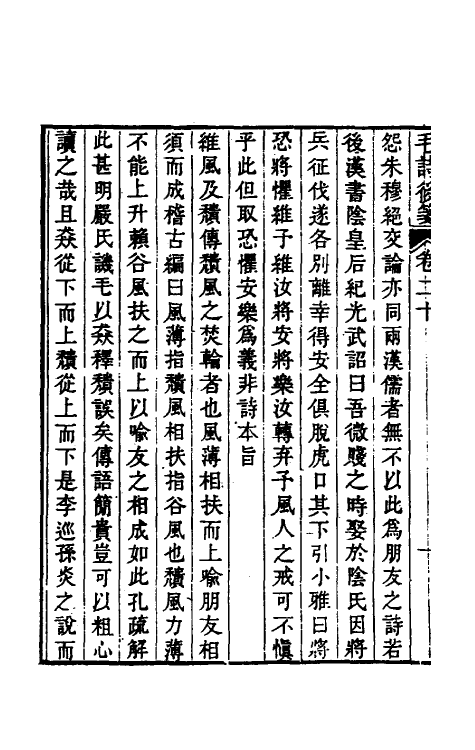 毛詩後箋 卷二十 一
怨朱穆絕交論亦同兩漢儒者無不以此為朋友之詩若
後漢書陰皇后紀光武詔曰吾微賤之時娶於陰氏因將
兵征伐遂各別離幸得安全俱脫虎口其下引小雅曰將
恐將懼維予維汝將安將樂汝轉弃予風人之戒可不慎
乎此但取恐懼安樂為義非詩本旨
維風及穨傳穨風之焚輪者也風薄相扶而上喻朋友相
須而成稽古編曰風薄指穨風相扶指谷風也穨風力薄
不能上升賴谷風扶之而上以喻友之相成如此孔疏解
此甚明嚴氏譏毛以猋釋穨誤矣傳語簡貴豈可以粗心
讀之哉且猋從下而上穨從上而下是李巡孫炎之說而